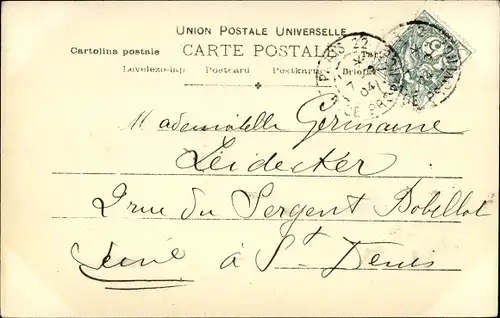 UNION POSTALE UNIVERSELLE
CARTE POSTALE
Cartolina postale
Levelezo-lap Postcard Postkarte
PARIS 22
04
Mademoiselle Germaine
Leidecker
2 rue du Sergent Bobillot
Seine à St Denis